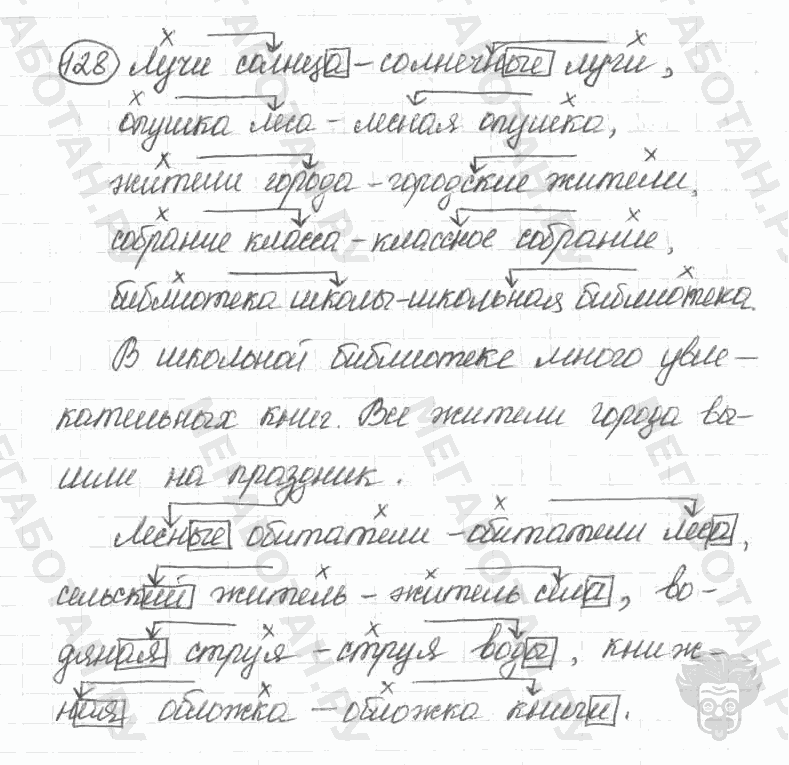 128 Лучи солнца – солнечные лучи,
опушка леса – лесная опушка,
жители города – городские жители,
собрание класса – классное собрание,
библиотека школы – школьная библиотека.
В школьной библиотеке много увле–
кательных книг. Все жители города вы–
шли на праздник.
Лесные обитатели – обитатели леса,
сельский житель – житель села, во–
дяная струя – струя воды, книж–
ная обложка – обложка книги.
МЕГАБОТАН.РУ